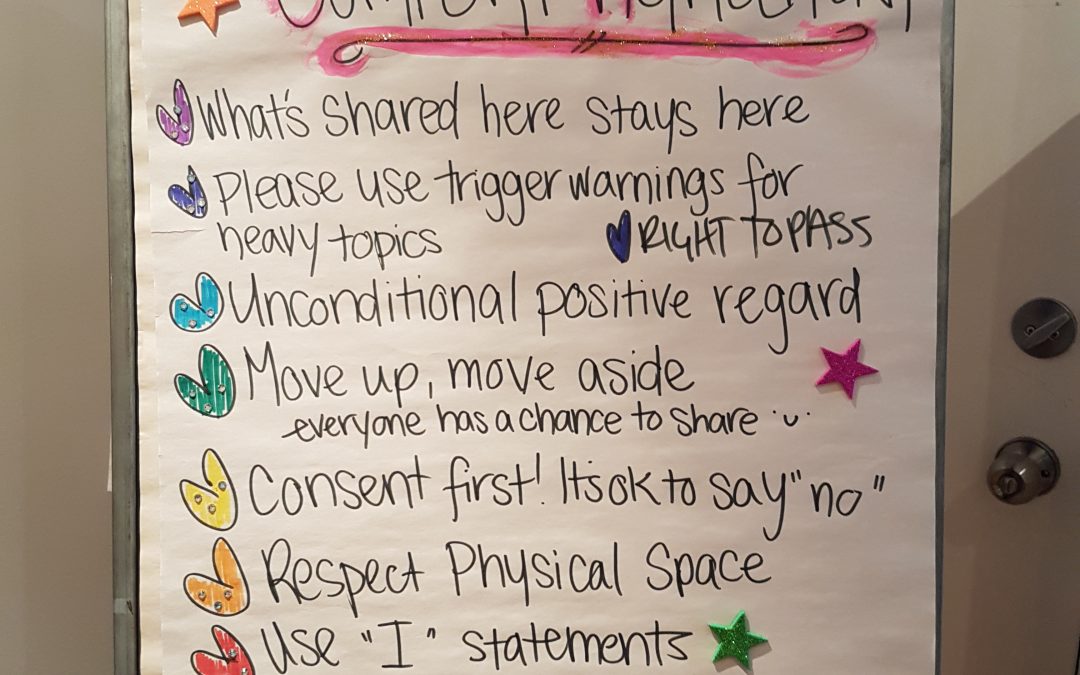 What's shared here stays here
Please use trigger warnings for
heavy topics
RIGHT TO PASS
Unconditional positive regard
Move up, move aside
everyone has a chance to share
Consent first! Its ok to say "no"
Respect Physical Space
Use "I" statements